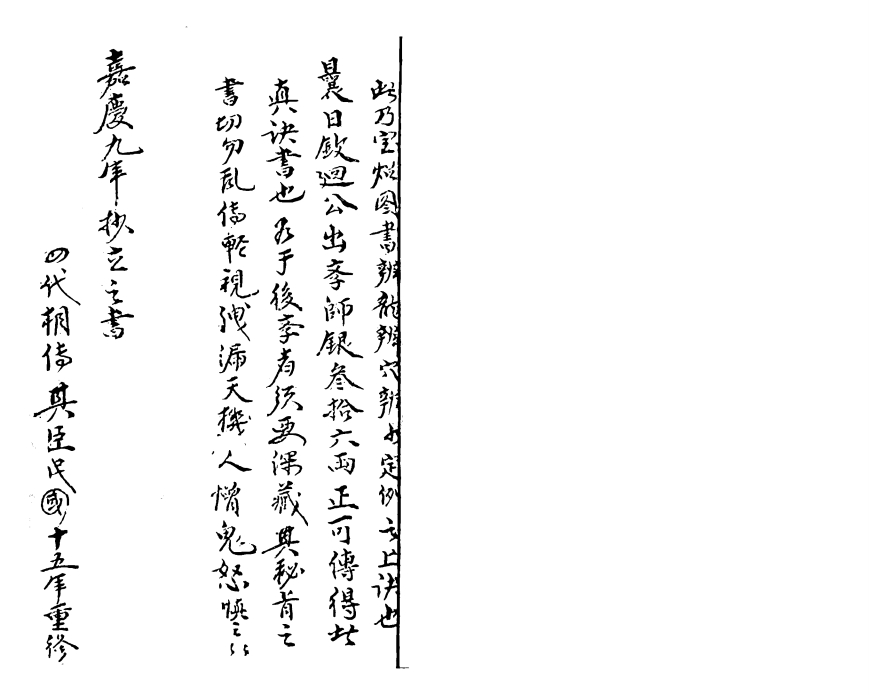 此乃宝炤图書辨龍辨穴辨水定例之上訣也
曩日欽廻公出李師銀叁拾六両正可傳得此
真訣書也 于後李者須要深藏其秘肯之
書切勿乱傳輕視洩漏天機人憎鬼怒慎之
嘉慶九年抄立之書
四代相傳 其臣民國十五年重修